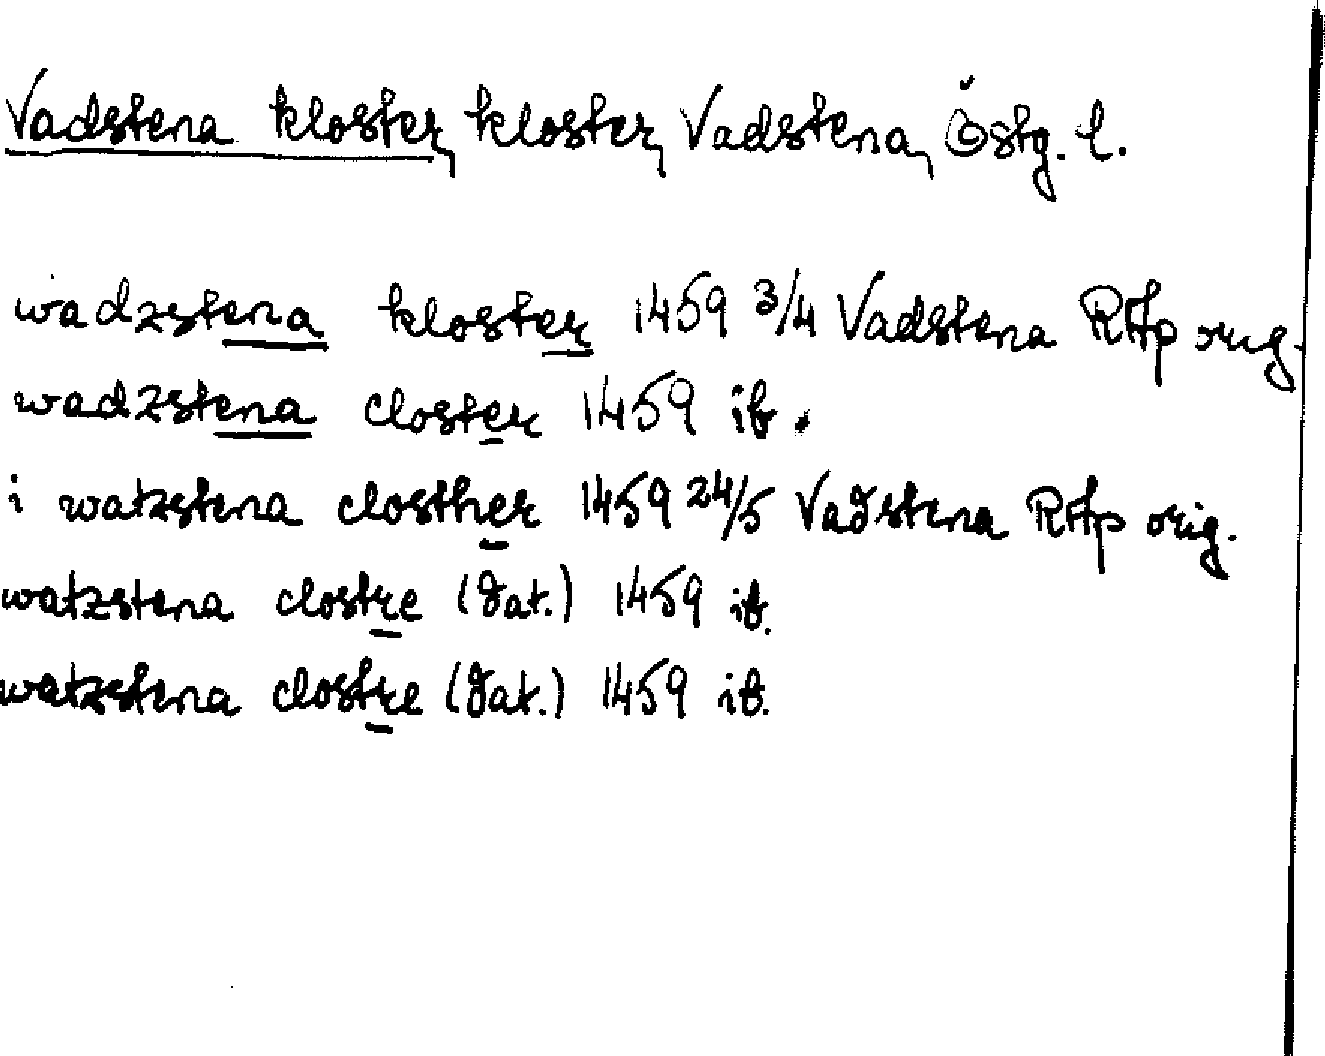 Vadstena kloster, kloster, Vadstena, Östg. l.
wadzstena kloster 1459 3/4 Vadstena RAp orig.
wadzstena closter 1459 ib.
i watzstena closther 1459 24/5 Vadstena RAp orig.
watzstena clostre (dat.) 1459 ib.
watzstena clostre (dat.) 1459 ib.